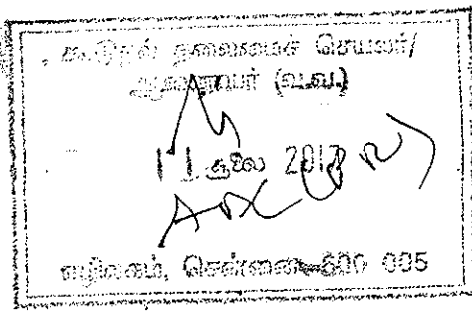 கூடுதல் தலைமைச் செயலர்/
ஆணையர் (வ.வ.)
11 சூலை 2017
எழிலகம், சென்னை-600 005